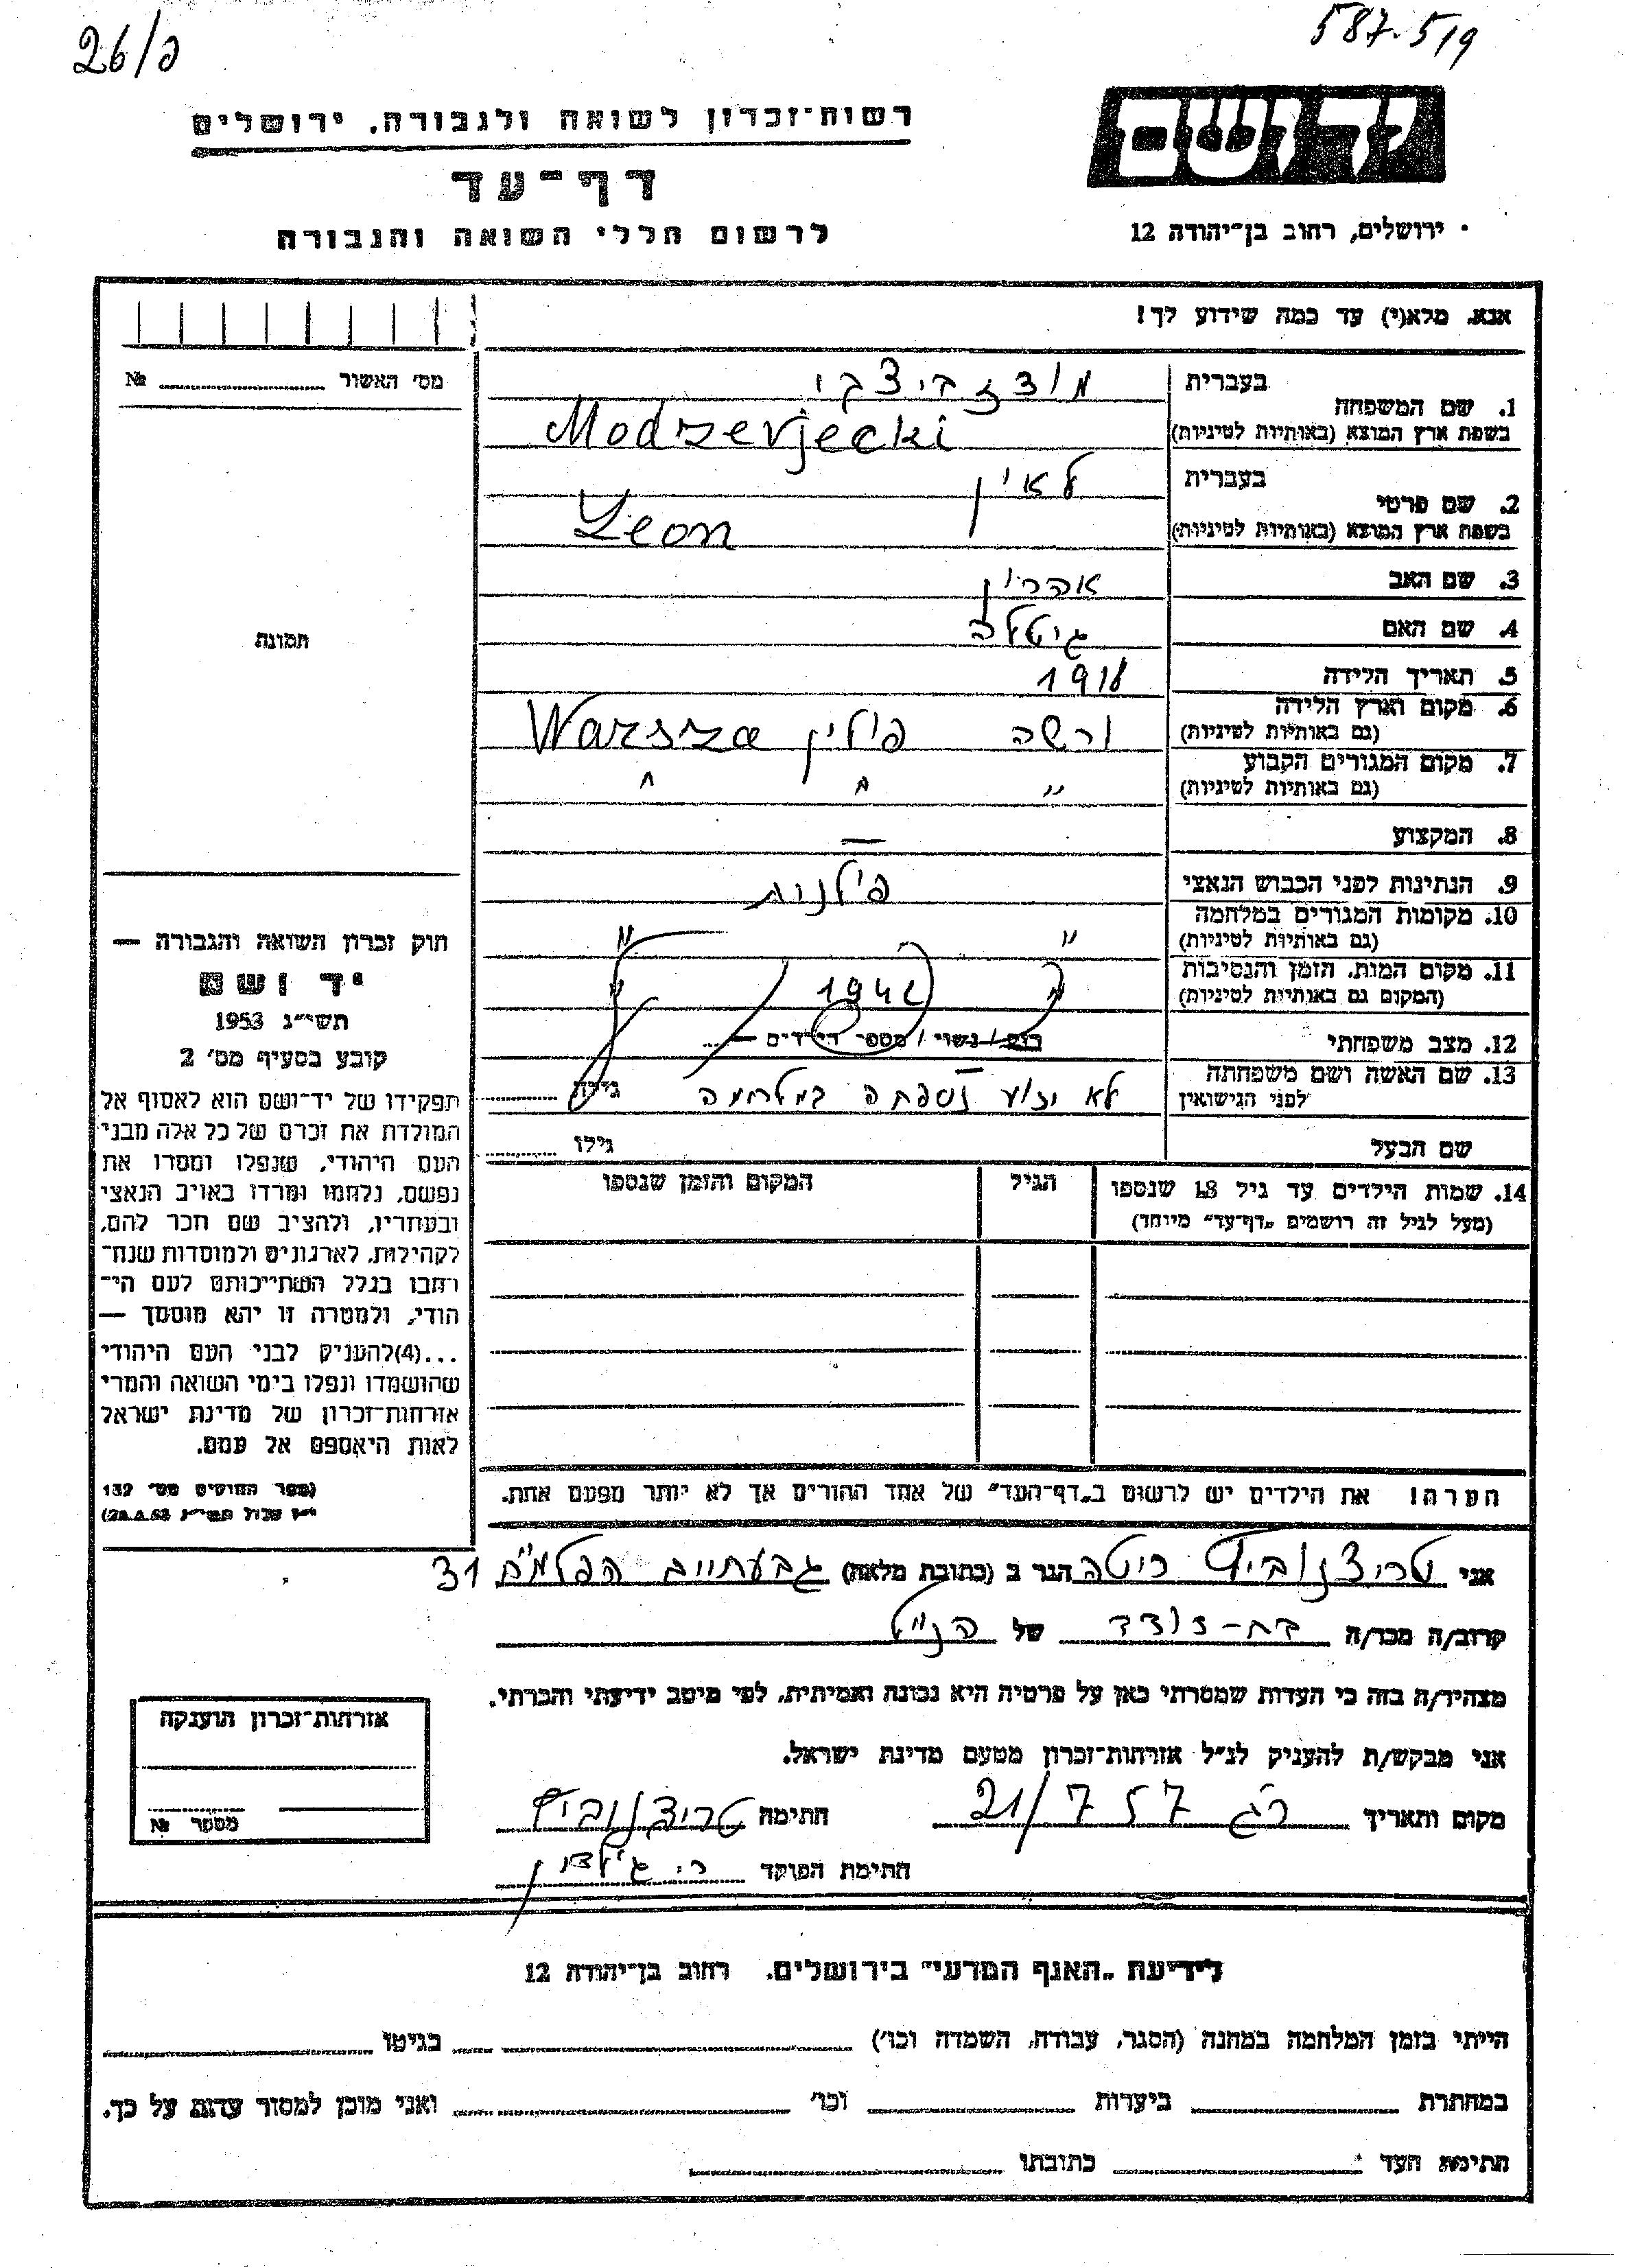 26/מ
587-519
רשות־זכרון לשואה ולגבורה, ירושלים
דף־עד
לרשום חללי השואה והגבורה
ידושם
ירושלים, רחוב בן־יהודה 12
אנא, מלא(י) עד כמה שידוע לך!
מס' האשור № 
1. שם המשפחה
בעברית
בשפת ארץ המוצא (באותיות לטיניות)
Modrzevjecki
2. שם פרטי
בעברית לאון
בשפת ארץ המוצא (באותיות לטיניות)
Leon
3. שם האב אהרון
4. שם האם גיטלה
5. תאריך הלידה
6. מקום וארץ הלידה
(גם באותיות לטיניות)
ורשה פולין Warsza
7. מקום המגורים הקבוע
(גם באותיות לטיניות)
" " "
8. המקצוע —
9. הנתינות לפני הכבוש הנאצי פולנית
10. מקומות המגורים במלחמה
(גם באותיות לטיניות)
" "
11. מקום המות, הזמן והנסיבות
(המקום גם באותיות לטיניות)
" 1942 "
12. מצב משפחתי
רוק / נשוי / מספר הילדים —
13. שם האשה ושם משפחתה
לפני הנישואין
לא ידוע נספתה במלחמה גילה
שם הבעל גילו
14. שמות הילדים עד גיל 18 שנספו
(מעל לגיל זה רושמים „דף־עד" מיוחד)
הגיל
המקום והזמן שנספו
תמונה
חוק זכרון השואה והגבורה —
יד ושם
תשי״ג 1953
קובע בסעיף מס' 2
תפקידו של יד־ושם הוא לאסוף אל
המולדת את זכרם של כל אלה מבני
העם היהודי, שנפלו ומסרו את
נפשם, נלחמו ומרדו באויב הנאצי
ובעוזריו, ולהציב שם וזכר להם,
לקהילות, לארגונים ולמוסדות שנח־
רבו בגלל השתייכותם לעם הי־
הודי, ולמטרה זו יהא מוסמך —
...(4) להעניק לבני העם היהודי
שהושמדו ונפלו בימי השואה והמרי
אזרחות־זכרון של מדינת ישראל
לאות היאספם אל עמם.
(ספר החוקים מס' 132
י״ז אלול תשי״ג 28.8.53)
הערה! את הילדים יש לרשום ב„דף־העד" של אחד ההורים אך לא יותר מפעם אחת.
אני ריטה הגר ב (כתובת מלאה) גבעתיים הפלמ״ח 31
קרוב/ה מכר/ה בת-דודה של הנ״ל
מצהיר/ה בזה כי העדות שמסרתי כאן על פרטיה היא נכונה ואמיתית, לפי מיטב ידיעתי והכרתי.
אני מבקש/ת להעניק לנ״ל אזרחות־זכרון מטעם מדינת ישראל.
מקום ותאריך ר״ג 21/7 57 חתימה
חתימת הפוקד
אזרחות־זכרון הוענקה
מספר №
לידיעת „האגף המדעי" בירושלים, רחוב בן־יהודה 12
הייתי בזמן המלחמה במחנה (הסגר, עבודה, השמדה וכו') בגיטו
במחתרת ביערות וכו' ואני מוכן למסור עדות על כך.
חתימת העד כתובתו